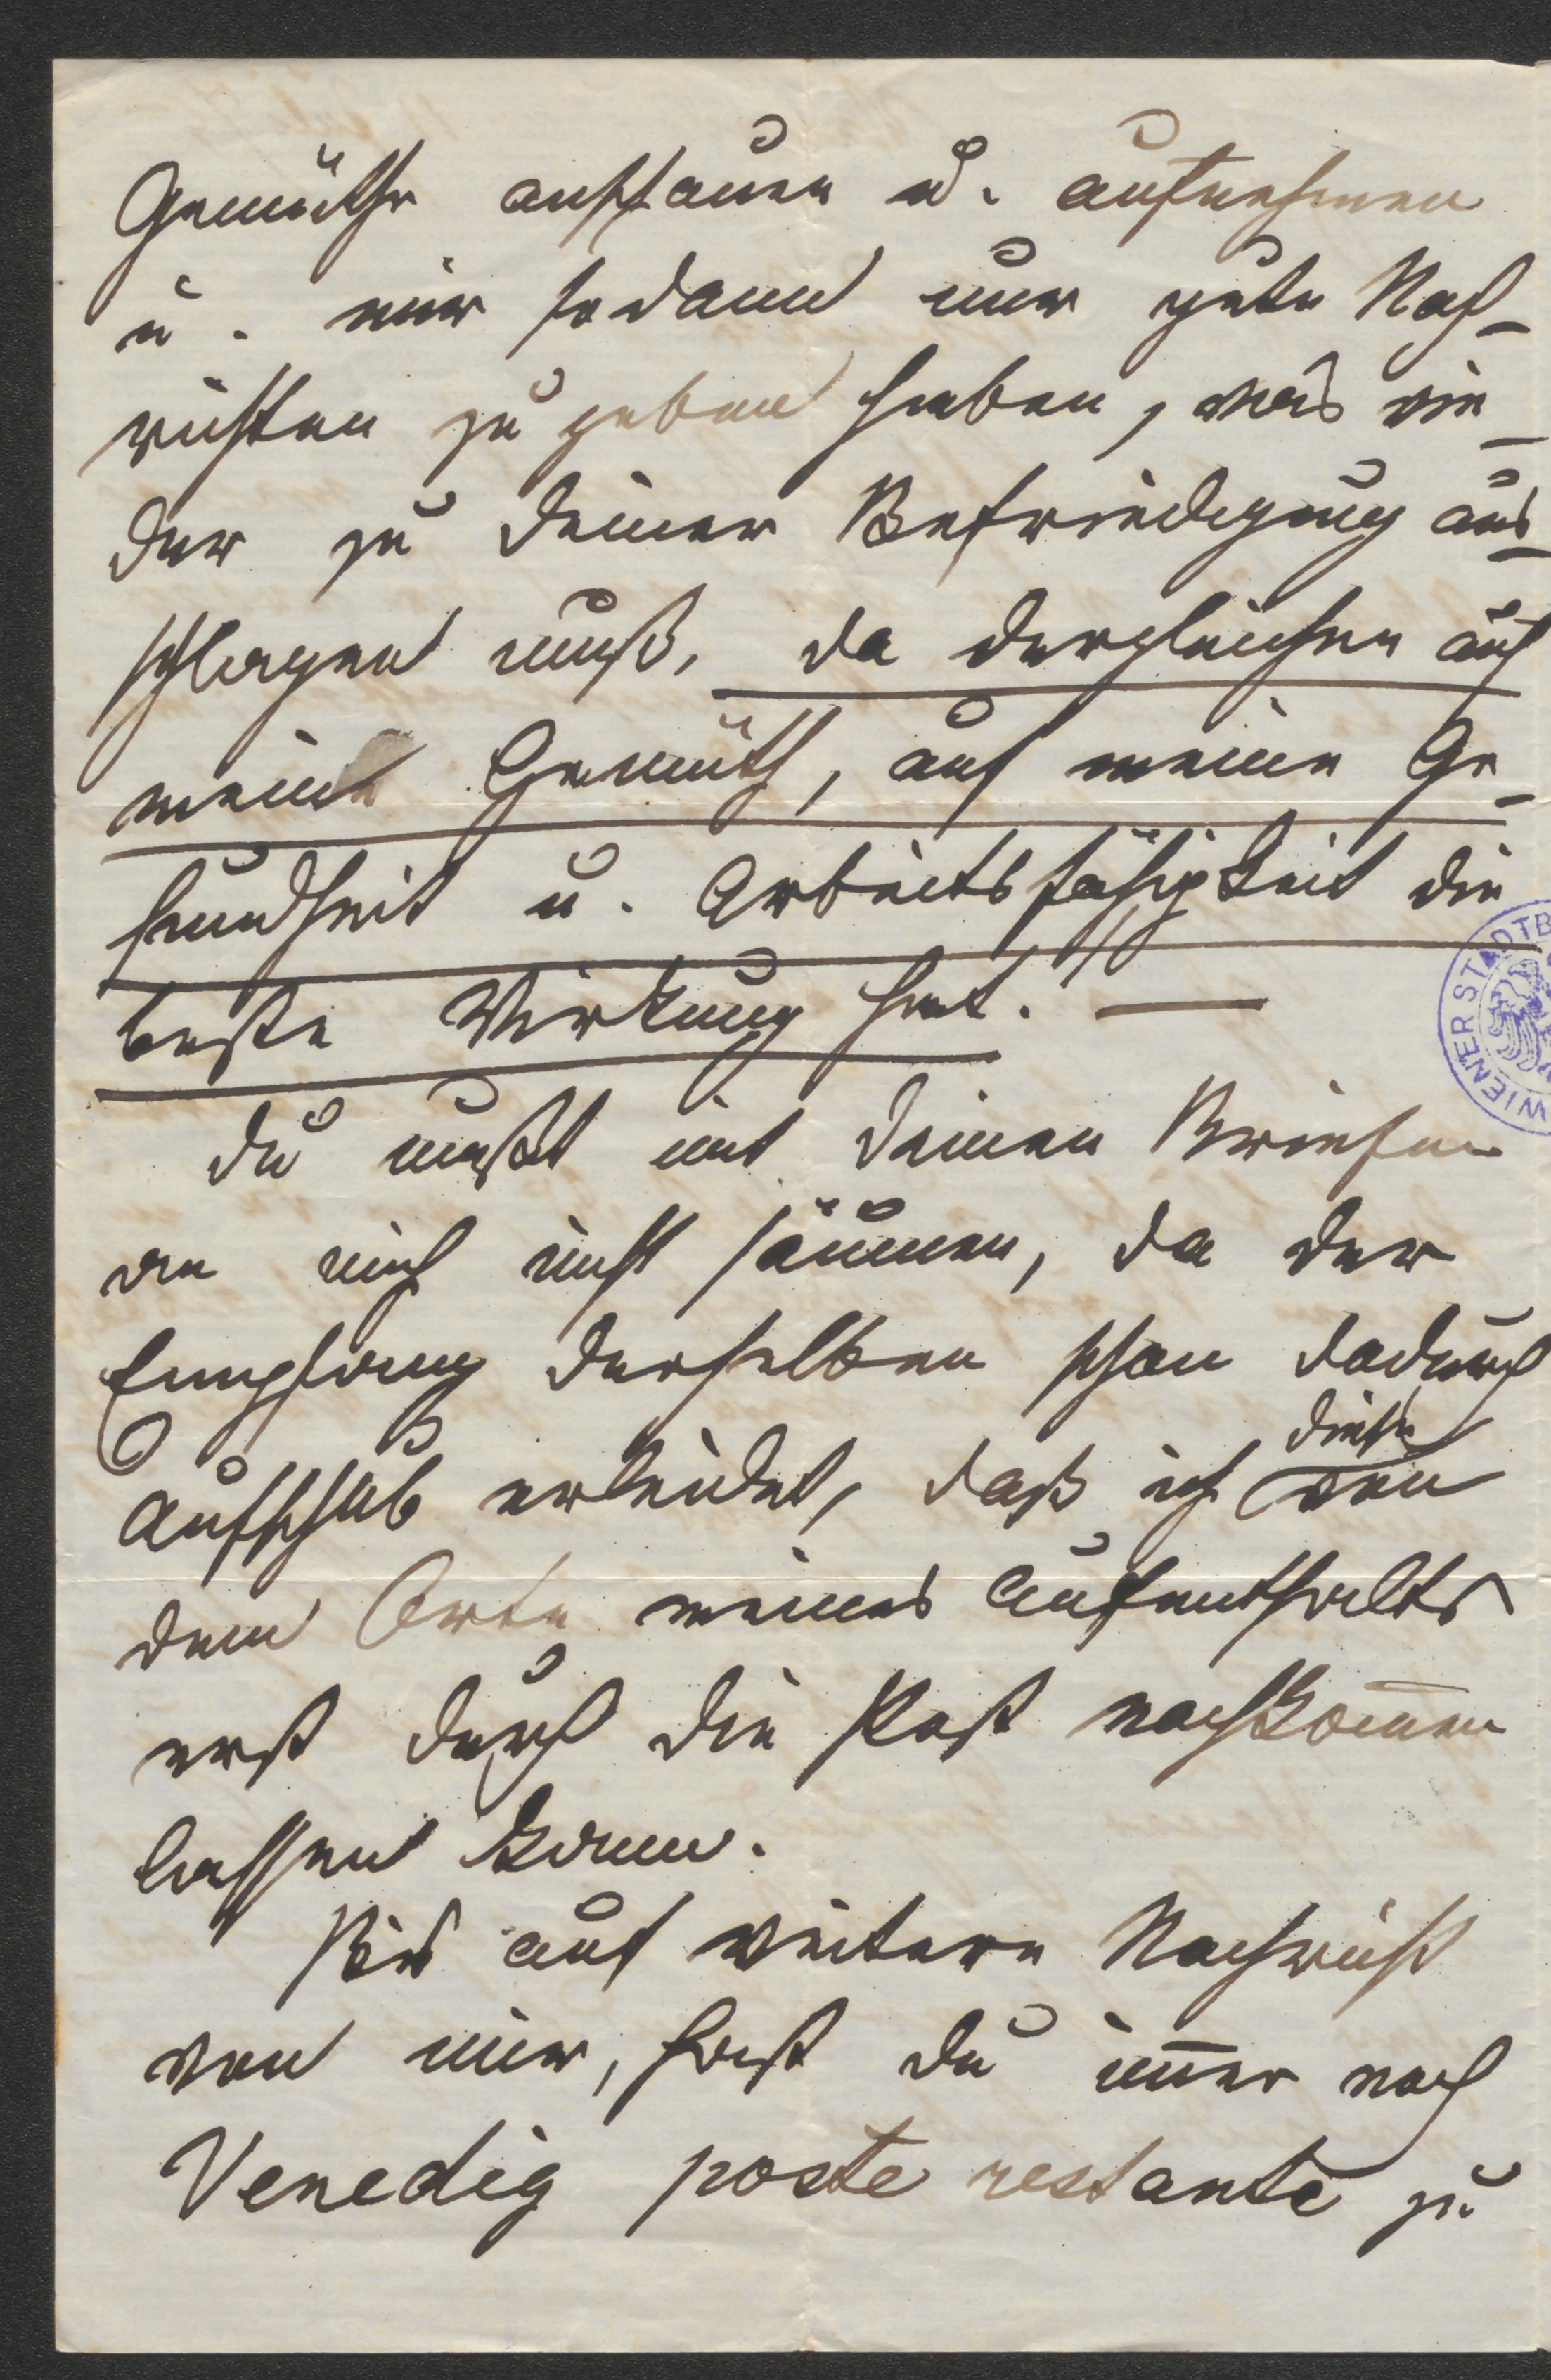 Gemüthe anschauen u. aufnehmen
u. mir sodann nur gute Nach-
richten zu geben haben, was wie-
der zu Deiner Befriedigung aus-
schlagen muß, da dergleichen auf
mein Gemüth, auf meine Ge-
sundheit u. Arbeitsfähigkeit die
beste Wirkung hat. —
Du mußt mit Deinen Briefen
an mich nicht säumen, da der
Empfang derselben schon dadurch
Aufschub erleidet, daß ich diese an
dem Orte meines Aufenthaltes
erst durch die Post nachkom̅en
lassen kann.
Bis auf weitere Nachricht
von mir, hast Du im̅er nach
Venedig poste restante zu
WIENER STADTB